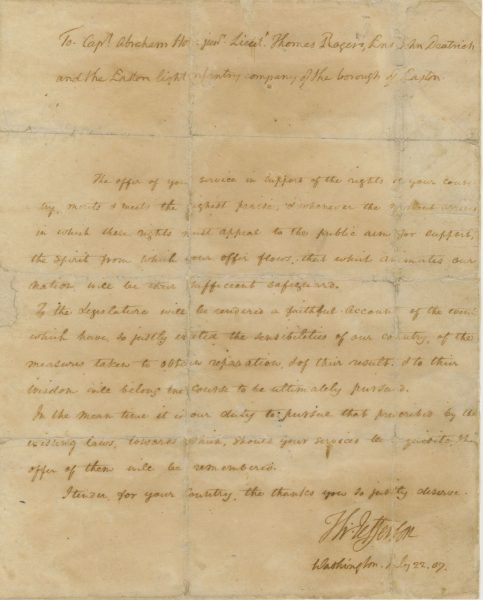 To Capt. Abraham Ho jun. Lieut. Thomas Rogers, Ens John Deatrick
and the Easton light nfantry company of the borough of Easton.
The offer of you service in support of the rights of your coun
try, merits & meets the ghest praise, & whenever the
in which these rights must appeal to the public arm for support,
the spirit from which your offer flows, that which animates our
nation, will be their sufficient safeguard.
To the Legislature will be rendered a faithful account of the
which have so justly excited the sensibilities of our country, of the
measures taken to obtain reparation & of their result, & to their
wisdom will belong the course to be ultimately pursued.
In the mean time it is our duty to pursue that prescribed by the
existing laws, towards should your services be
offer of them will be remembered.
I tender, for your country, the thanks you so justly deserve.
Th: Jefferson
Washington July 22. 07.